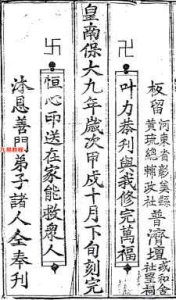 板留
河東省彰美縣
黃琉總輔政社
普濟壇
卍
叶力恭刋與我修完萬福
皇南保大九年歲次甲戌十月下旬刻完
卐
恒心印送在家能救衆人
沐恩善門弟子諸人仝奉刋